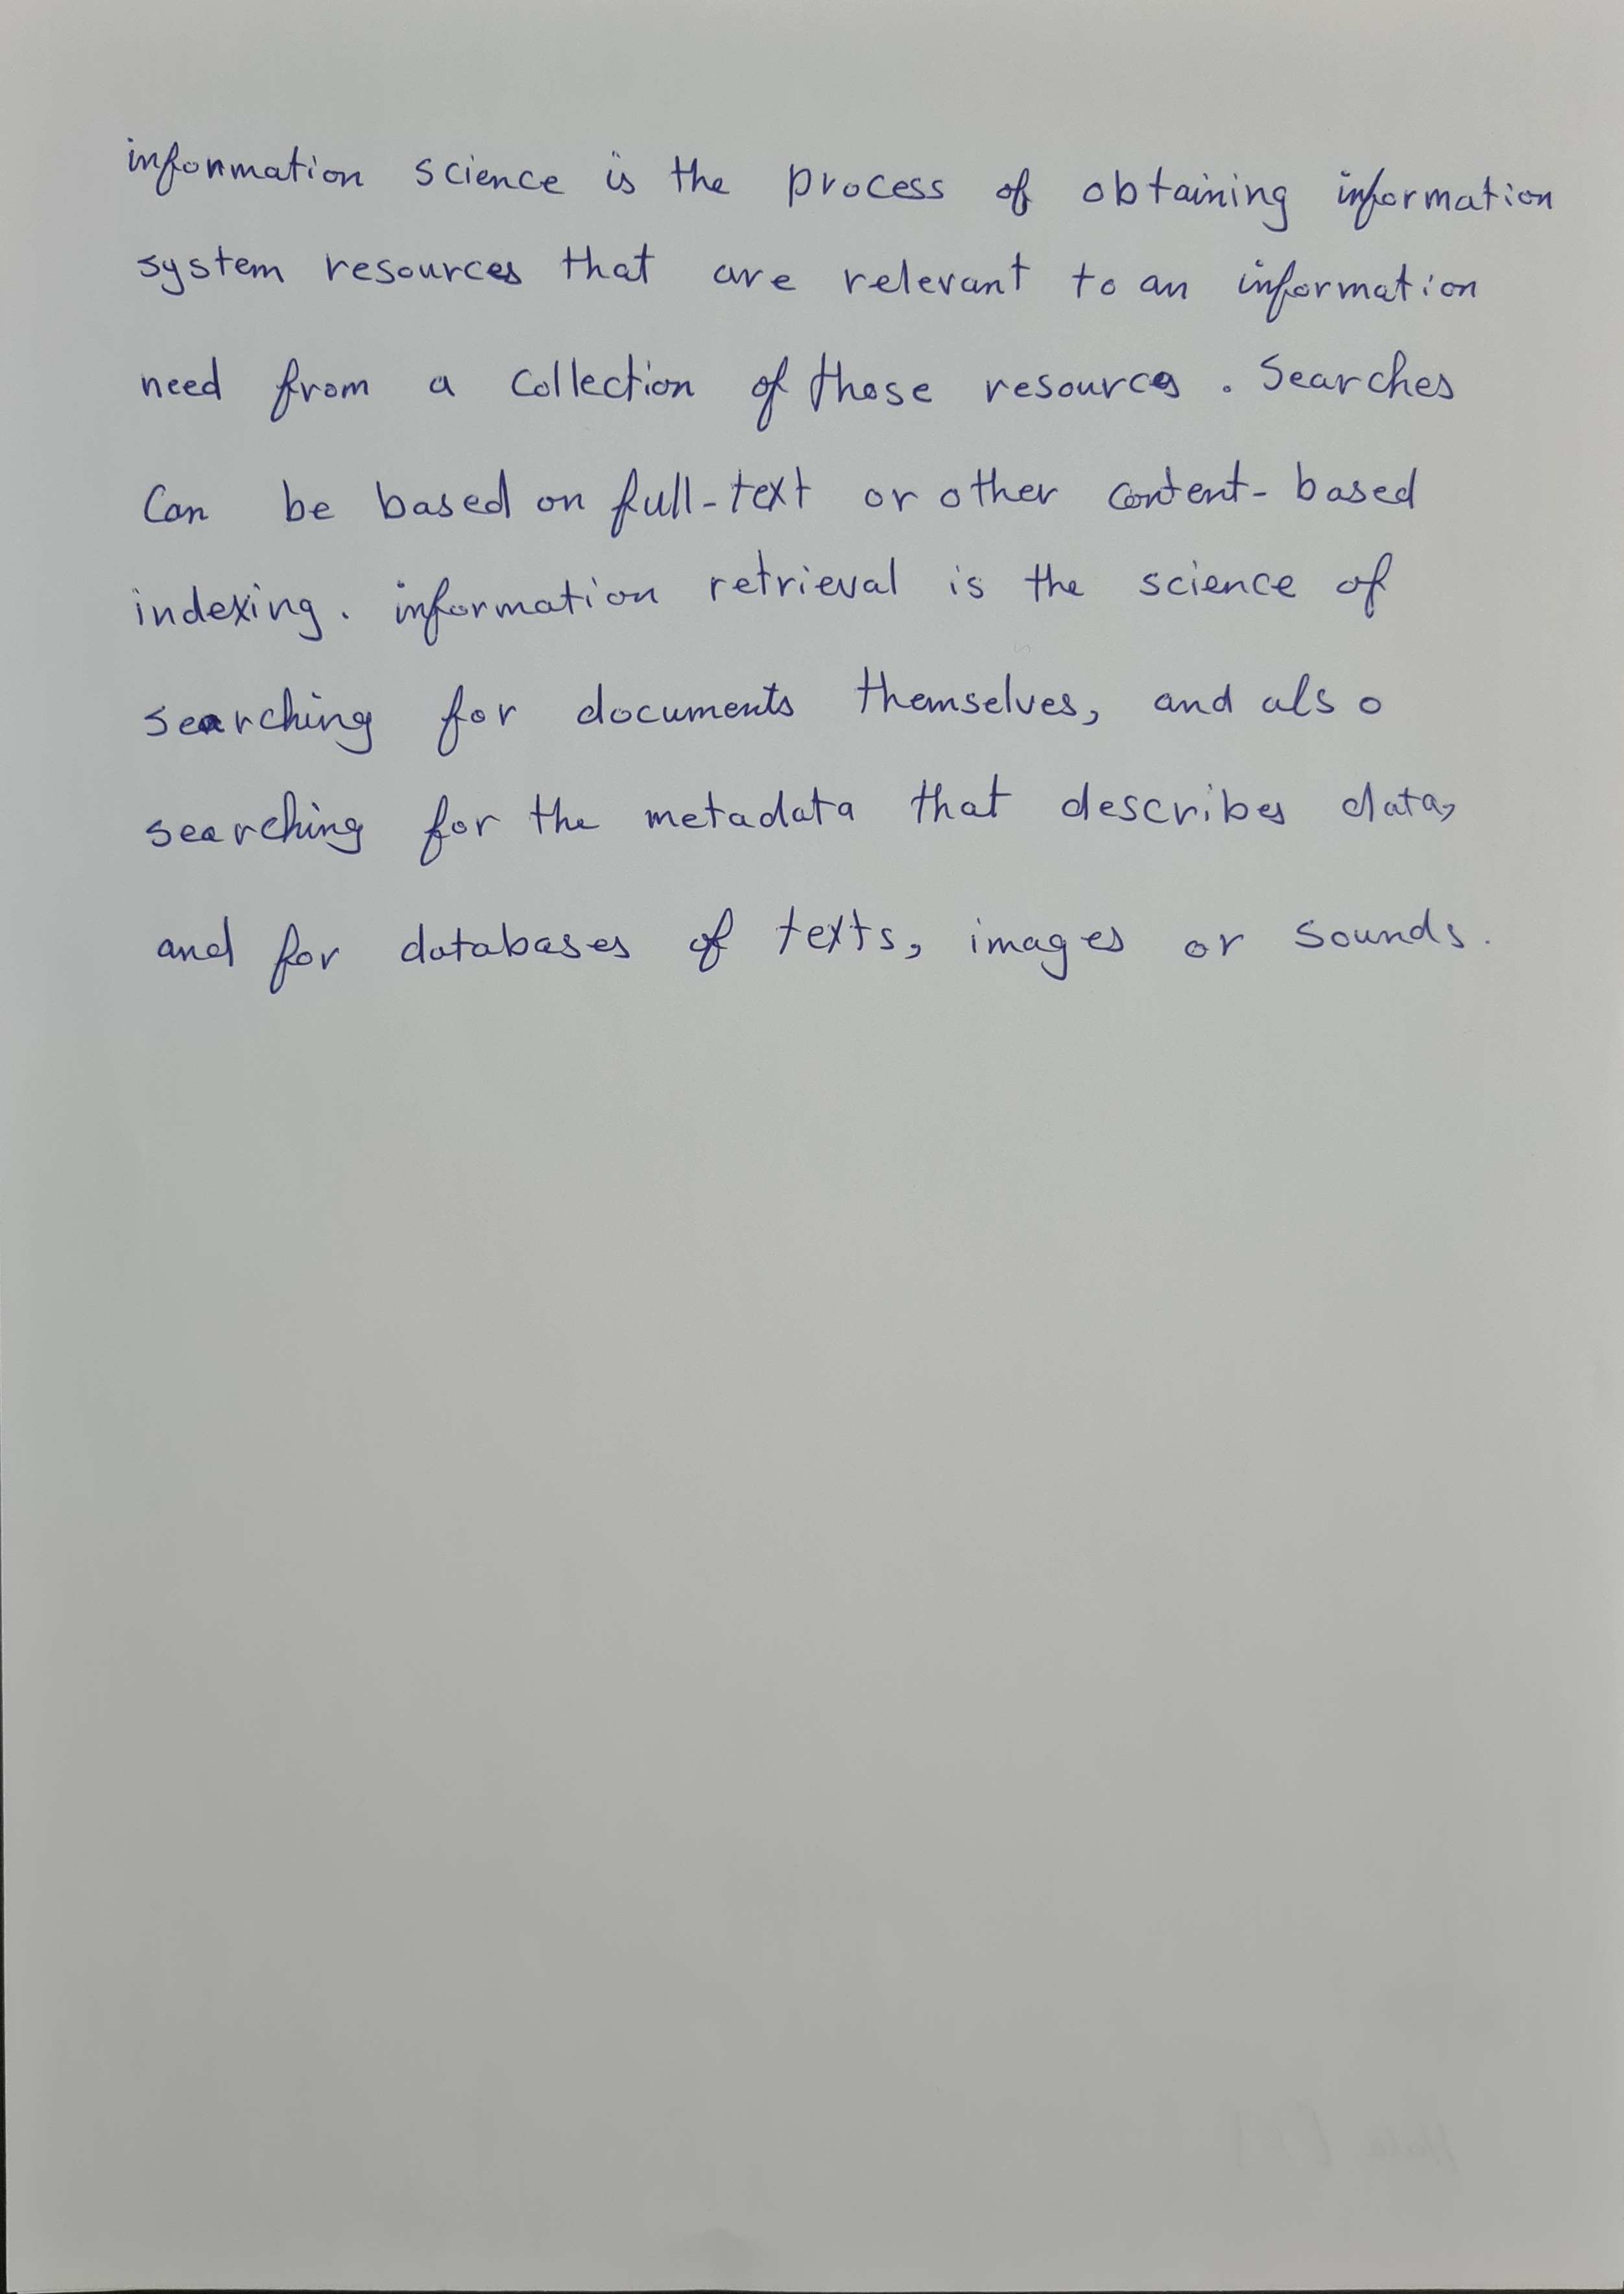 information science is the process of obtaining information
system resources that are relevant to an information
need from a collection of those resources . Searches
Can be based on full-text or other content-based
indexing. information retrieval is the science of
searching for documents themselves, and also
searching for the metadata that describes data,
and for databases of texts, images or sounds.